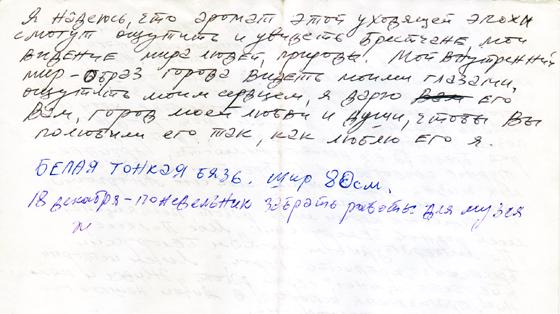 Я надеюсь, что аромат этой уходящей эпохи
смогут ощутить и увидеть брестчане, мои
видение мира людей, природы. Мой внутренний
мир-образ города видеть моими глазами,
ощутить моим сердцем, я дарю его
Вам, город моей любви и души, чтобы Вы
полюбили его так, как люблю его я.
БЕЛАЯ ТОНКАЯ БЯЗЬ. шир 80см.
18 декабря-понедельник забрать работы для музея